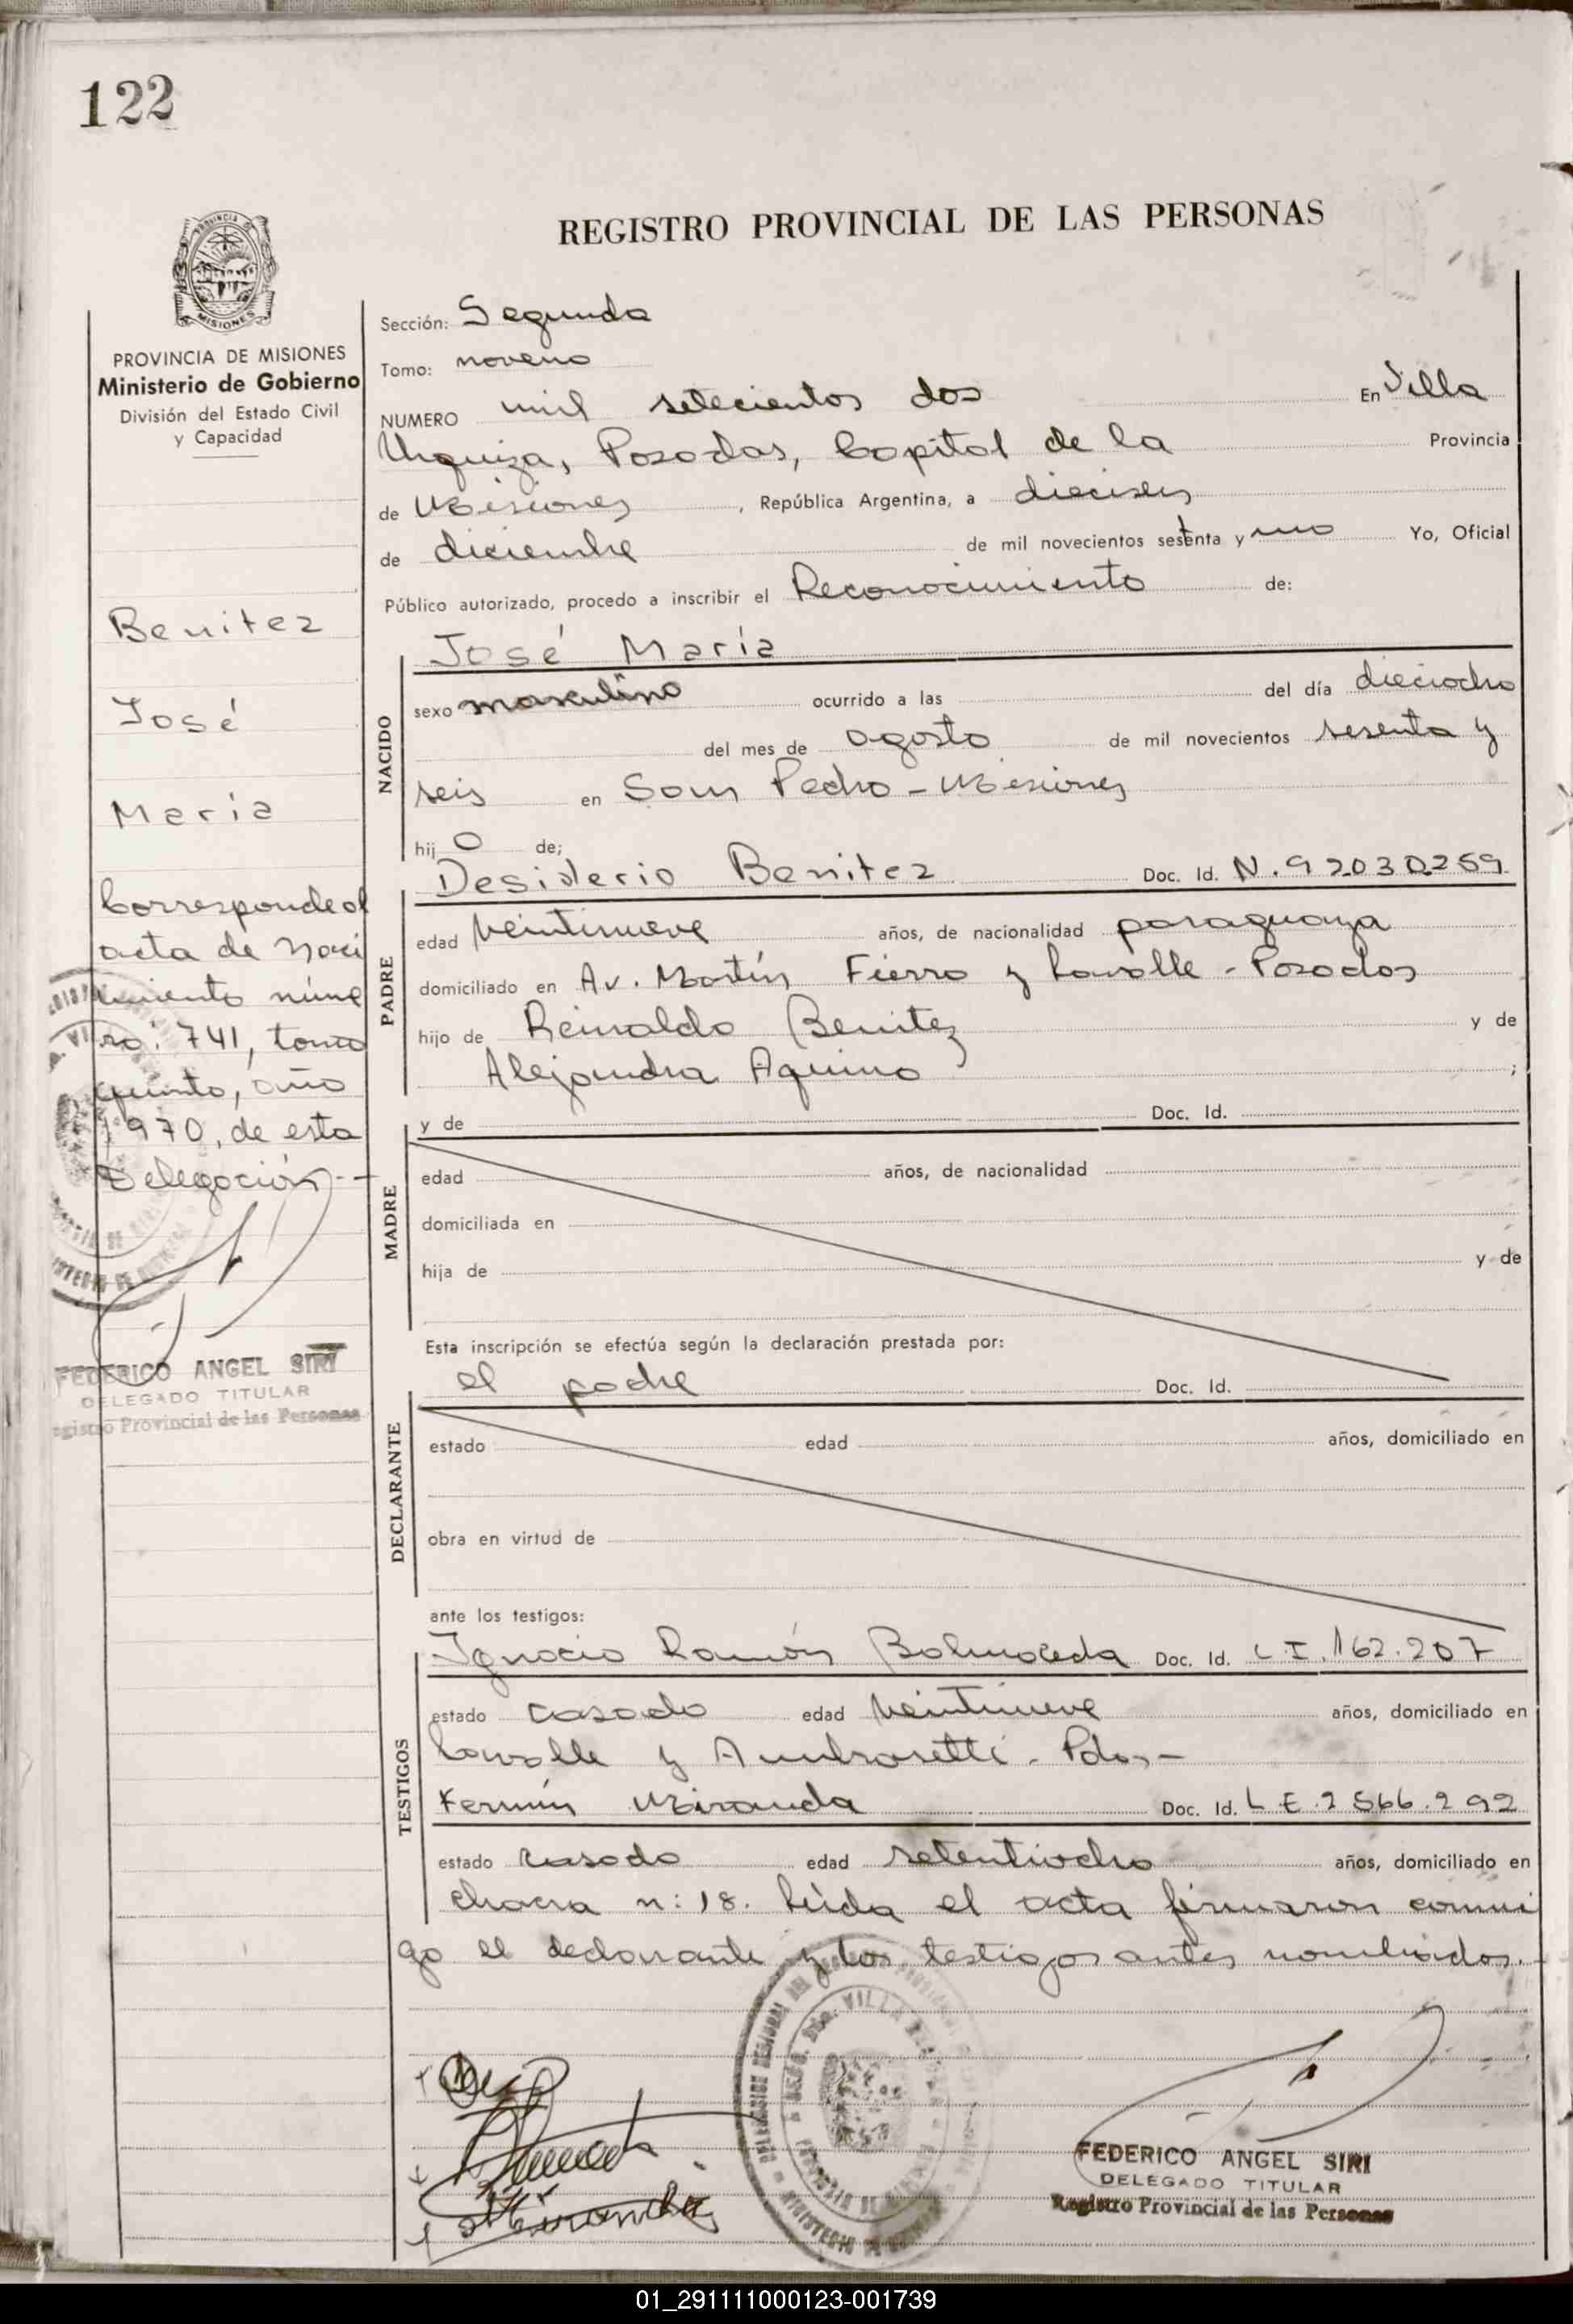 122
REGISTRO PROVINCIAL DE LAS PERSONAS
PROVINCIA DE MISIONES
Ministerio de Gobierno
División del Estado Civil
y Capacidad
Benitez
José
María
Corresponde al
acta de naci
miento núme
ro: 741, tomo
quinto, año
1970, de esta
Delegación.-
FEDERICO ANGEL SIRI
DELEGADO TITULAR
Registro Provincial de las Personas
Sección: Segunda
Tomo: noveno
NUMERO mil setecientos dos En Villa
Urquiza, Posadas, Capital de la Provincia
de Misiones, República Argentina, a dieciseis
de diciembre de mil novecientos setenta y uno Yo, Oficial
Público autorizado, procedo a inscribir el Reconocimiento de:
José María
NACIDO
sexo masculino ocurrido a las del día dieciocho
del mes de agosto de mil novecientos sesenta y
seis en San Pedro - Misiones
hijo de;
Desiderio Benitez Doc. Id. N. 92030259
PADRE
edad veintinueve años, de nacionalidad paraguaya
domiciliado en Av. Martín Fierro y Lavalle - Posadas
hijo de Reinaldo Benitez y de
Alejandra Aquino ;
y de Doc. Id.
MADRE
edad años, de nacionalidad
domiciliada en
hija de y de
Esta inscripción se efectúa según la declaración prestada por:
el padre Doc. Id.
DECLARANTE
estado edad años, domiciliado en
obra en virtud de
ante los testigos:
Ignacio Ramón Balmaceda Doc. Id. L I. 162.207
TESTIGOS
estado casado edad veintinueve años, domiciliado en
Lavalle y Ambrosetti - Pdas -
Fermín Miranda Doc. Id. L E. 2566.292
estado casado edad setentiocho años, domiciliado en
chacra n: 18. Leída el acta firmaron conmi
go el declarante y los testigos antes nombrados.
Miranda
FEDERICO ANGEL SIRI
DELEGADO TITULAR
Registro Provincial de las Personas
01_291111000123-001739